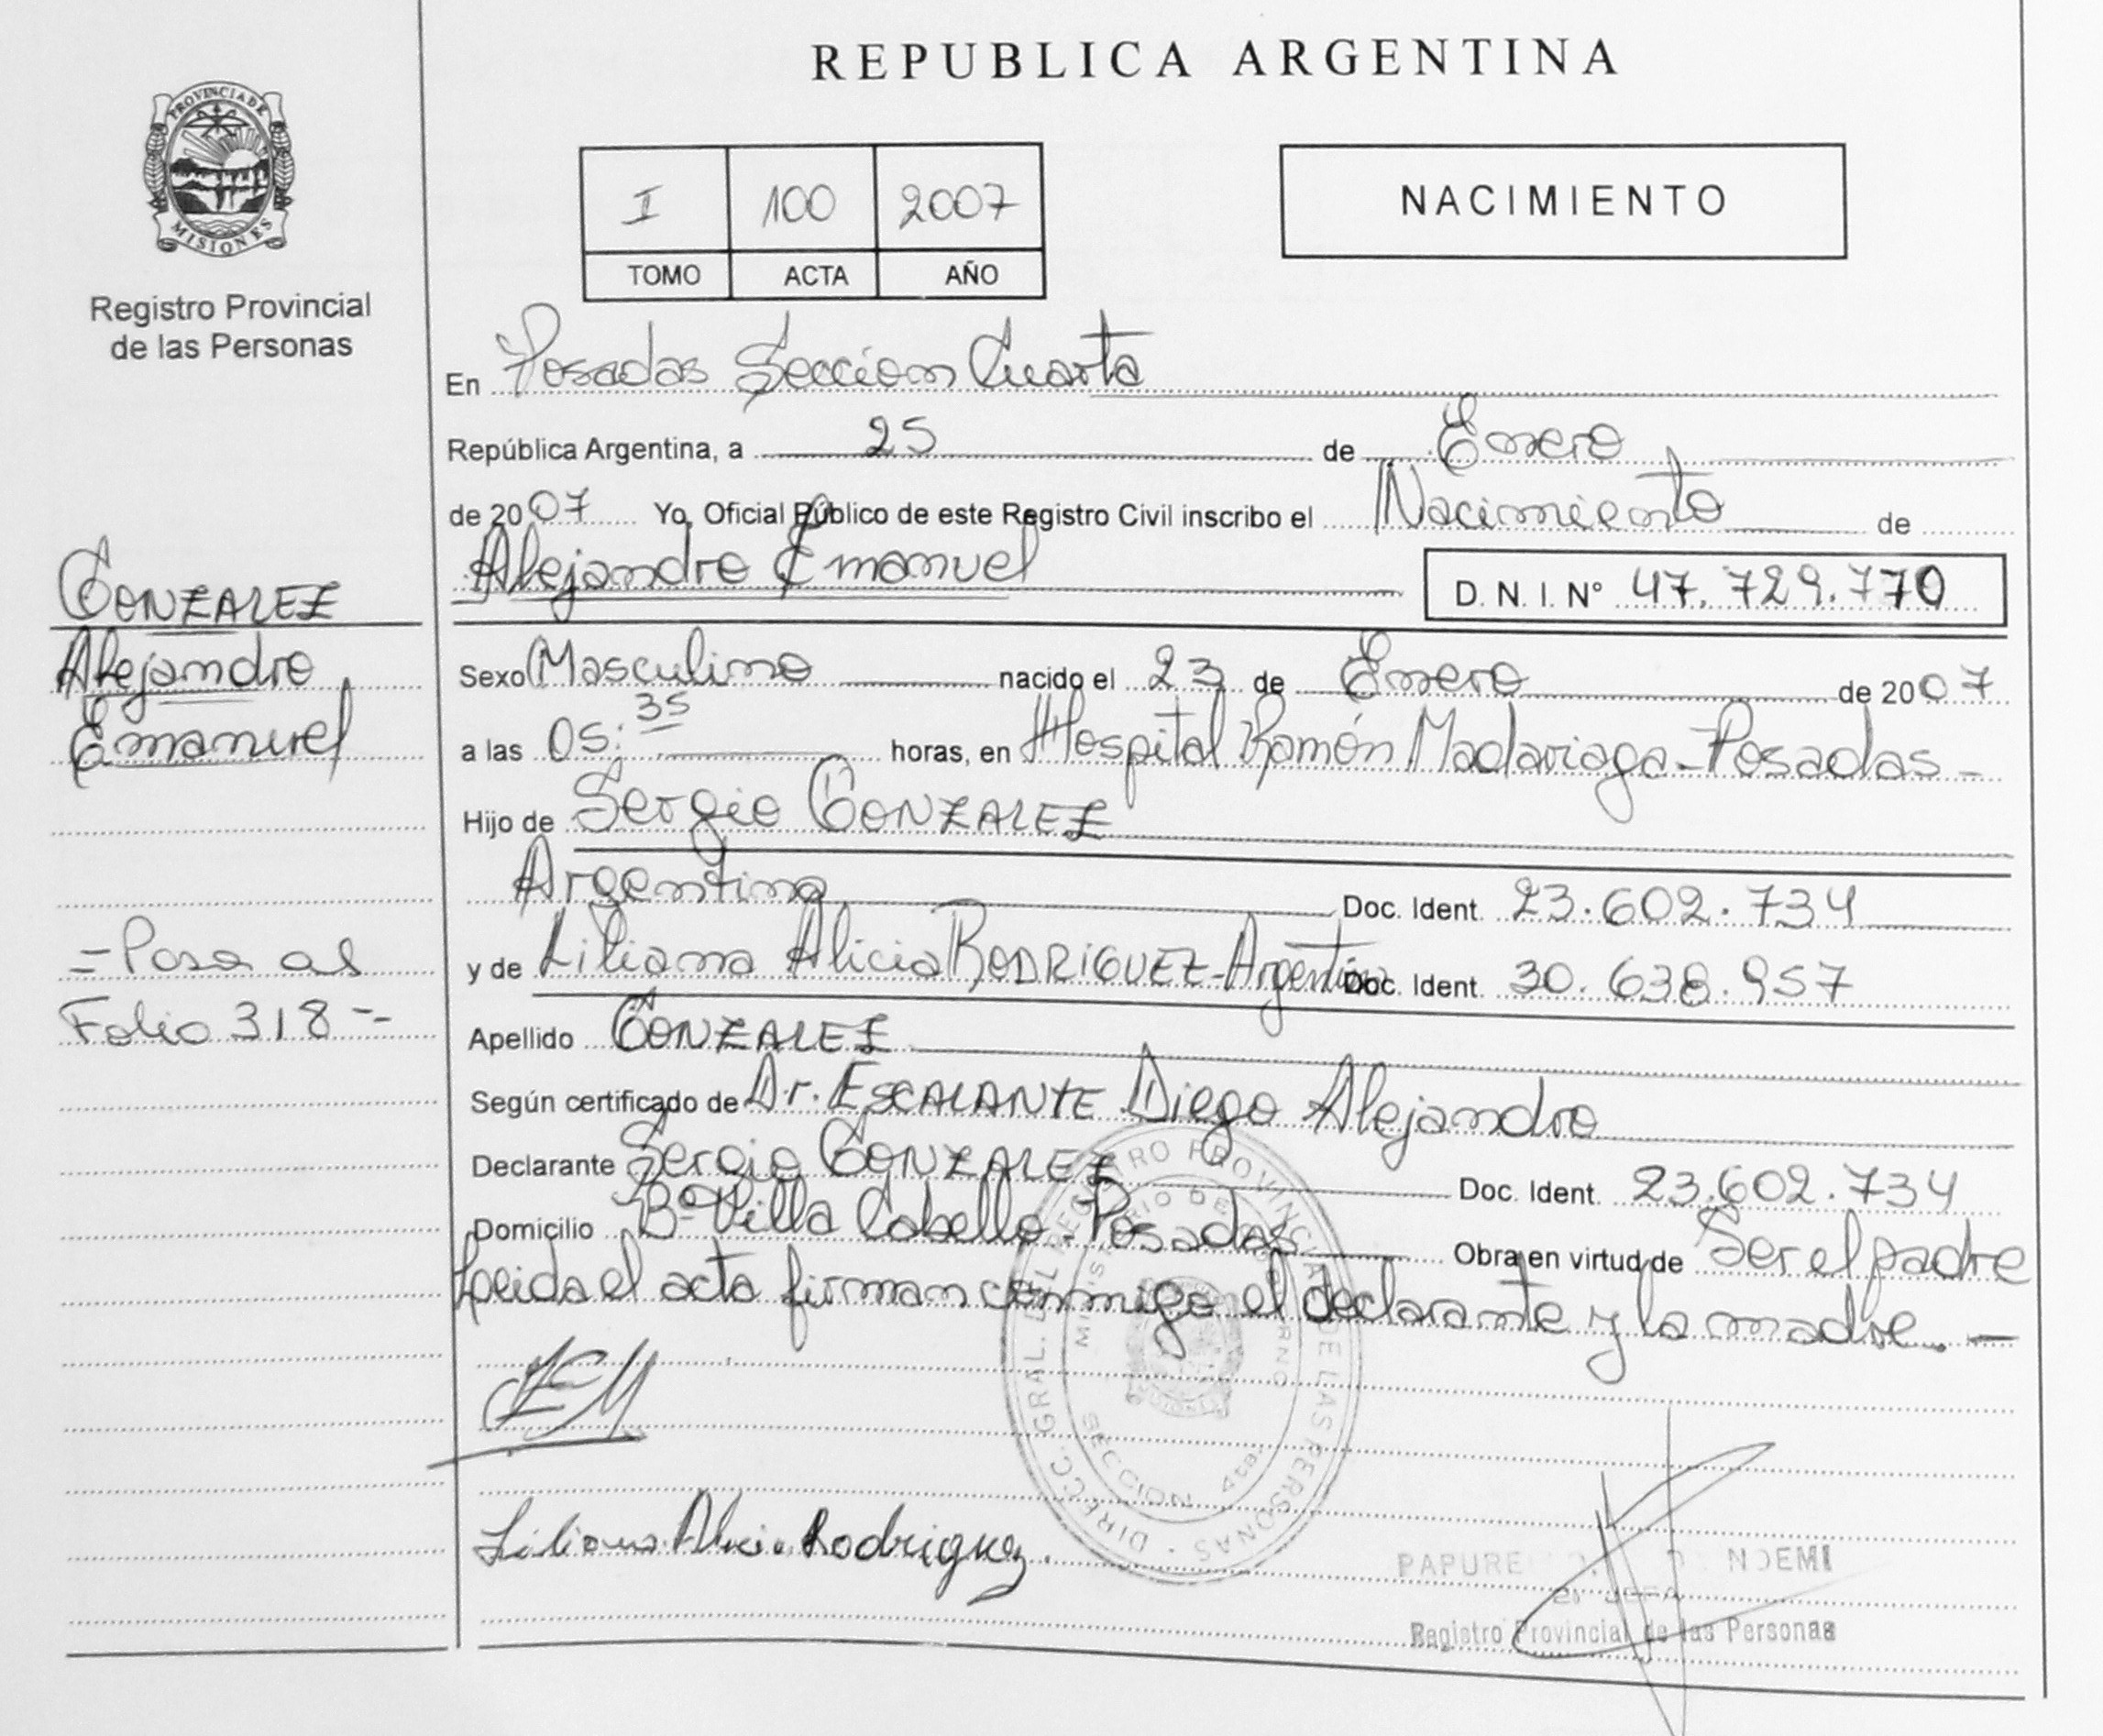 REPUBLICA ARGENTINA
PROVINCIA DE
MISIONES
Registro Provincial
de las Personas
I 100 2007
TOMO ACTA AÑO
NACIMIENTO
En Posadas Sección Cuarta
República Argentina, a 25 de Enero
de 2007 Yo, Oficial Público de este Registro Civil inscribo el Nacimiento de
Alejandro Emanuel D. N. I. N° 47.729.770
GONZALEZ
Alejandro
Emanuel
Sexo Masculino nacido el 23 de Enero de 2007
a las 05:35 horas, en Hospital Ramón Madariaga - Posadas -
Hijo de Sergio GONZALEZ
Argentino Doc. Ident. 23.602.734
y de Liliana Alicia RODRIGUEZ - Argentina Doc. Ident. 30.638.957
= Pasa al
Folio 318 =
Apellido GONZALEZ
Según certificado de Dr. ESCALANTE Diego Alejandro
Declarante Sergio GONZALEZ Doc. Ident. 23.602.734
Domicilio B° Villa Cabello - Posadas Obra en virtud de Ser el padre
Leida el acta firman conmigo el declarante y la madre. -
DIRECC. GRAL. DEL REGISTRO PROVINCIAL DE LAS PERSONAS
MINISTERIO DE GOBIERNO
SECCION 4ta.
Liliana Alicia Rodriguez.
NOEMI
JEFA
Registro Provincial de las Personas